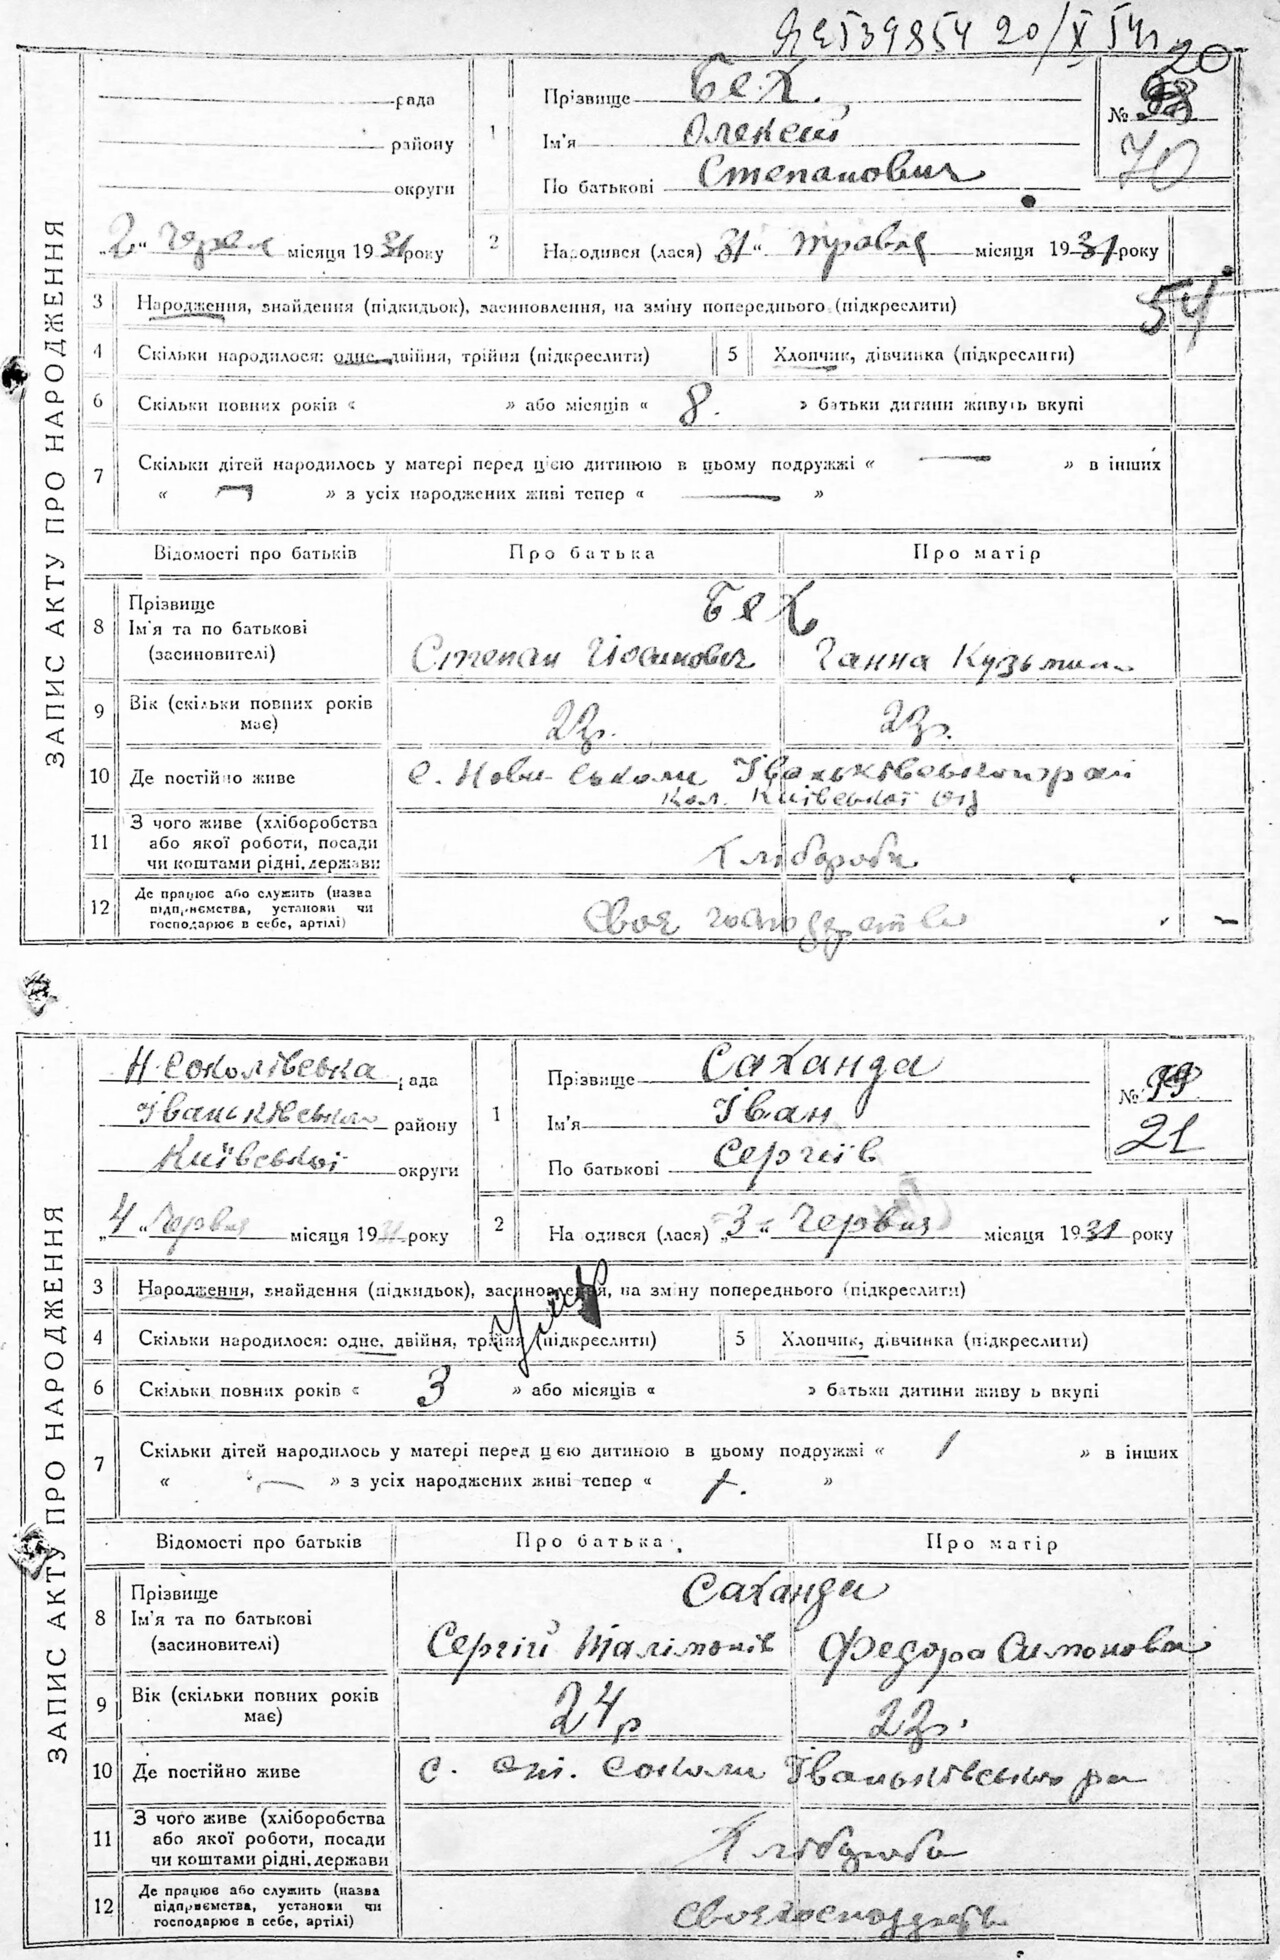 ЯЕ539854 20/X 54р
20
ЗАПИС АКТУ ПРО НАРОДЖЕННЯ
рада
району
округи
„2“ червня місяця 1931 року
1
Прізвище Бех
Ім'я Олексій
По батькові Степанович
№ 70
2 Народився (лася) 31“ травня місяця 1931 року
3 Народження, знайдення (підкидьок), засиновлення, на зміну попереднього (підкреслити)
54
4 Скільки народилося: одне, двійня, трійня (підкреслити)
5 Хлопчик, дівчинка (підкреслити)
6 Скільки повних років « » або місяців « 8. » батьки дитини живуть вкупі
7 Скільки дітей народилось у матері перед цією дитиною в цьому подружжі « — » в інших
« — » з усіх народжених живі тепер « — »
Відомості про батьків Про батька Про матір
8 Прізвище
Ім'я та по батькові
(засиновителі)
Бех
Степан Йосипович Ганна Кузьмин
9 Вік (скільки повних років
має)
22р. 22р.
10 Де постійно живе
с. Нові-Соколи Іваньківського рай
Кол. Київської окр
11 З чого живе (хліборобства
або якої роботи, посади
чи коштами рідні, держави
Хлібороби
12 Де працює або служить (назва
підприємства, установи чи
господарює в себе, артілі)
Своя господарств
ЗАПИС АКТУ ПРО НАРОДЖЕННЯ
Н Соколівська рада
Іваньківськ району
Київської округи
„4“ Червня місяця 1931 року
1
Прізвище Саханда
Ім'я Іван
По батькові Сергіїв
№ 19
21
2 Народився (лася) „3“ Червня місяця 1931 року
3 Народження, знайдення (підкидьок), засиновлення, на зміну попереднього (підкреслити)
Умер
4 Скільки народилося: одне, двійня, трійня (підкреслити)
5 Хлопчик, дівчинка (підкреслити)
6 Скільки повних років « 3 » або місяців « » батьки дитини живуть вкупі
7 Скільки дітей народилось у матері перед цією дитиною в цьому подружжі « 1 » в інших
« — » з усіх народжених живі тепер « 1. »
Відомості про батьків Про батька Про матір
8 Прізвище
Ім'я та по батькові
(засиновителі)
Саханда
Сергій Талімонів Федора Симонова
9 Вік (скільки повних років
має)
24р 22р.
10 Де постійно живе
с. Ст. Соколи Іваньківського ра
11 З чого живе (хліборобства
або якої роботи, посади
чи коштами рідні, держави
Хлібороби
12 Де працює або служить (назва
підприємства, установи чи
господарює в себе, артілі)